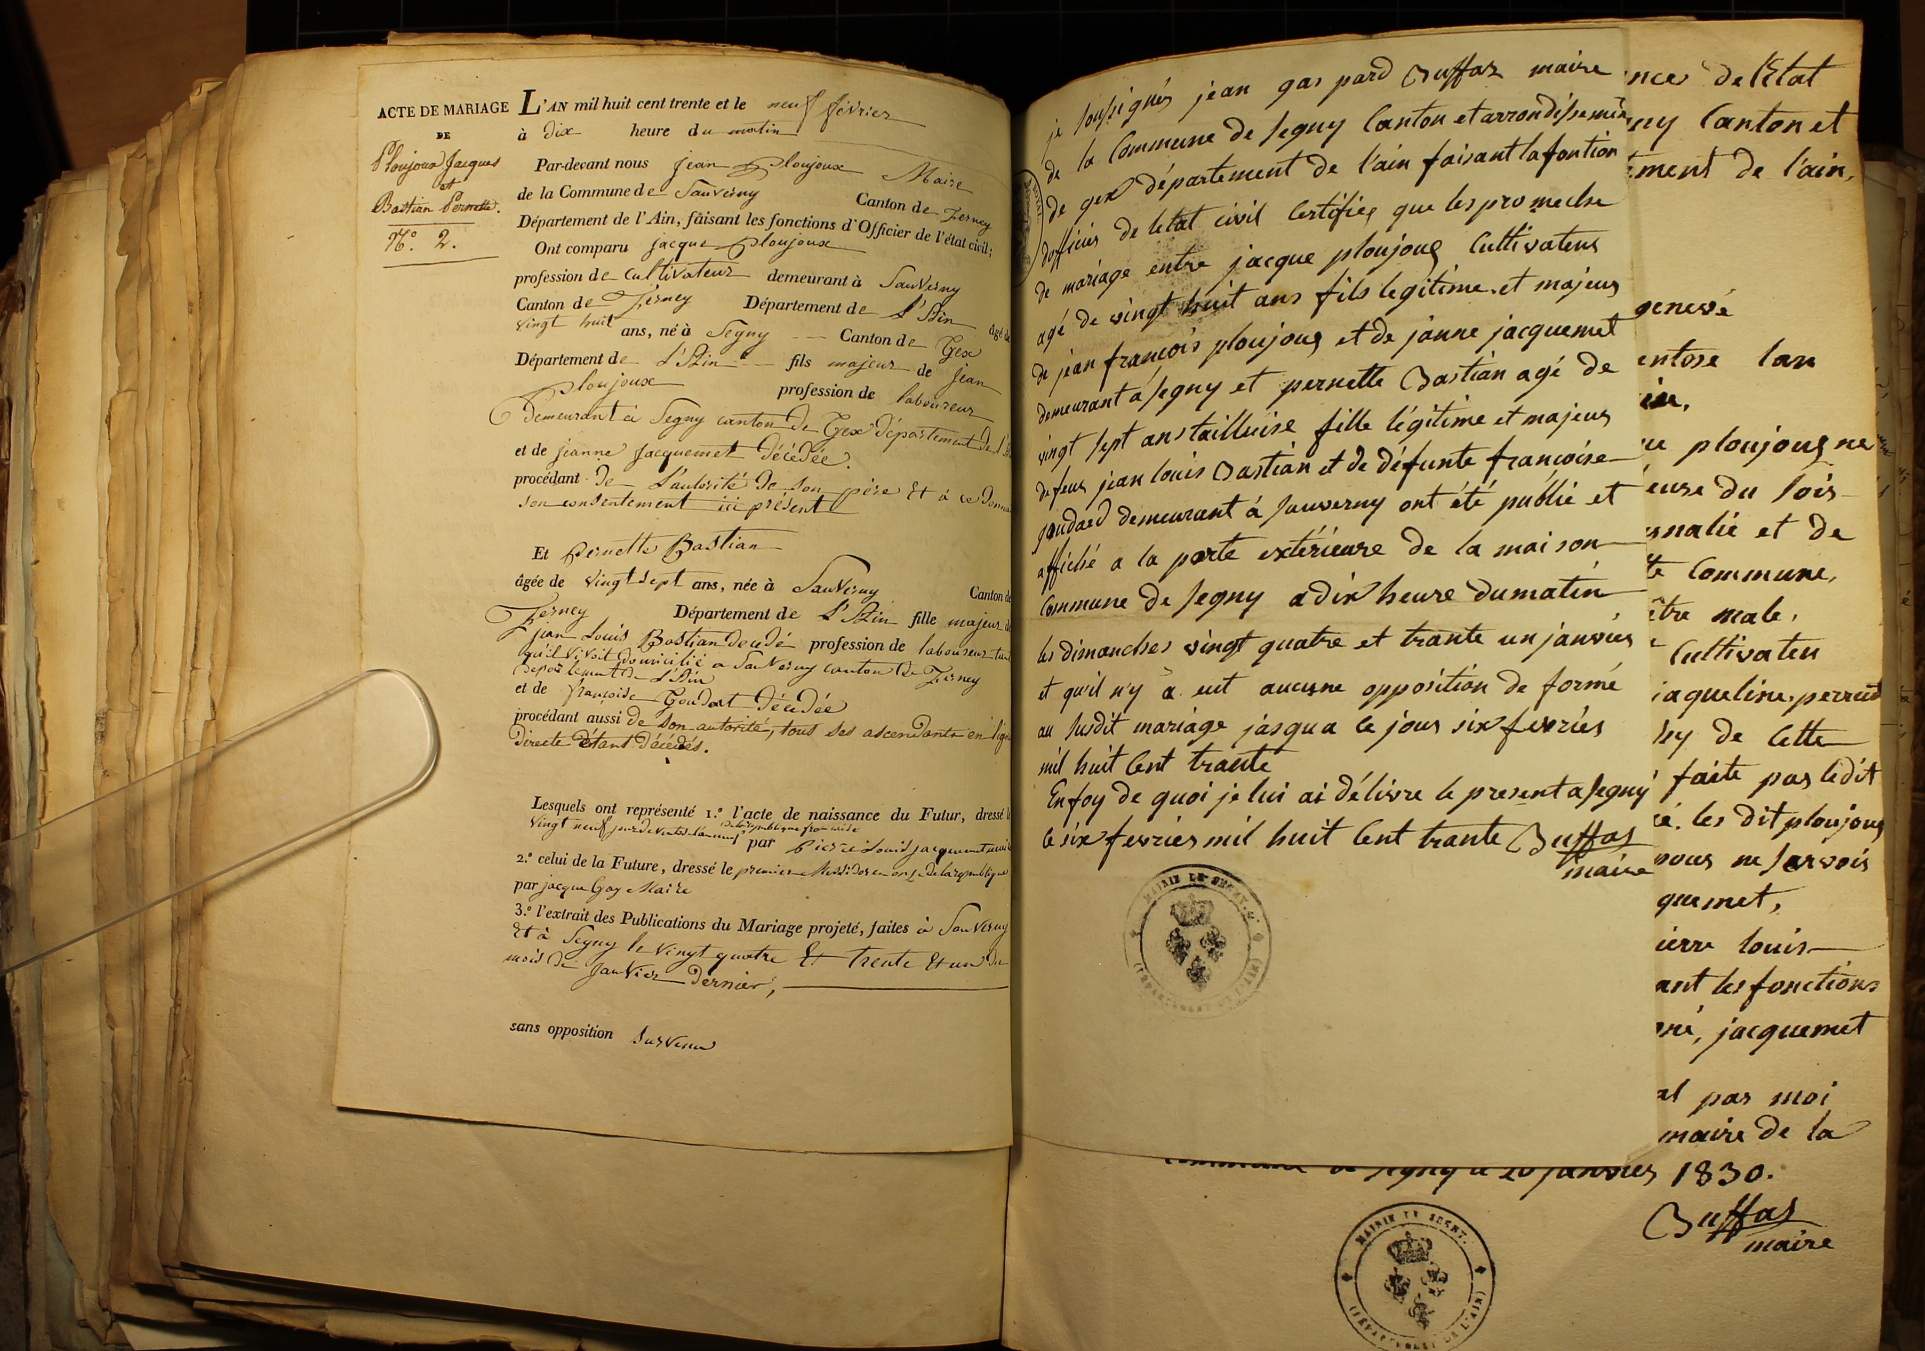 ACTE DE MARIAGE
DE
Ploujoux Jacques
et
Bastian Pernette.
N.° 2.
L'AN mil huit cent trente et le neuf février
à dix heure du matin
Par-devant nous Jean Ploujoux Maire
de la Commune de Sauverny Canton de Ferney
Département de l'Ain, faisant les fonctions d'Officier de l'état civil;
Ont comparu jacque Ploujoux
profession de cultivateur demeurant à Sauverny
Canton de Ferney Département de L'Ain âgé de
vingt huit ans, né à Segny Canton de Gex
Département de L'Ain fils majeur de jean
Ploujoux profession de laboureur
Demeurant à Segny canton de Gex département de l'
et de jeanne Jacquemet décédée.
procédant de L'autorité de son père Et à ce
son consentement ici présent
Et Pernette Bastian
âgée de vingt sept ans, née à Sauverny Canton de
Ferney Département de L'Ain fille majeur
jean Louis Bastian décédé profession de laboureur
qu'il vivoit domicilié a Sauverny canton de Ferney
département de L'Ain
et de françoise Goudart décédée
procédant aussi de son autorité, tous ses ascendants en ligne
Directe étant décédés.
Lesquels ont représenté 1.° l'acte de naissance du Futur, dressé le
vingt neuf de la république française
par Pierre Louis jacquemet
2.° celui de la Future, dressé le premier Messidor an onze de la république
par jacque Gay Maire
3.° l'extrait des Publications du Mariage projeté, faites à Sauverny
Et à Segny le vingt quatre Et trente Et un du
mois de Janvier dernier,
sans opposition survenu
je soussignés jean gaspard Buffaz maire
de la Commune de segny Canton et arrondissement
de gex département de l'ain faisant la fontion
dofficiés de letat civil Certifies que les promeche
de mariage entre jacque ploujoug Cultivateur
agé de vingt huit ans fils legitime et majeur
de jean françois ploujoug et de janne jacquemet
demeurant a segny et pernette Bastian agé de
vingt sept ans tailluise fille légitime et majeur
defeux jean louis Bastian et de défunte françoise
goudard demeurant à sauverny ont été publié et
affiché a la porte extérieure de la maison
Commune de segny a dix heure du matin
les dimanches vingt quatre et trante un janvier
et qu'il n'y a eut aucune opposition de formé
au susdit mariage jasqua ce jour six fevriés
mil huit Cent trante
En foy de quoi je lui ai délivre le present a segny
le six fevries mil huit Cent trante Buffas
maire
MAIRIE DE SEGNY.
(DÉPARTEMENT DE L'AIN)
de l'Etat
Canton et
de l'ain,
genevé
lan
ploujoug ne
du sois
et de
Commune,
male,
Cultivaten
jaqueline perrut
de Cette
faite par ledit
les dit ploujoug
ne savoir
louis
ant les fonctions
jacquemet
par moi
maire de la
segny le 20 janvier 1830.
Buffas
maire
MAIRIE DE SEGNY.
(DÉPARTEMENT DE L'AIN)